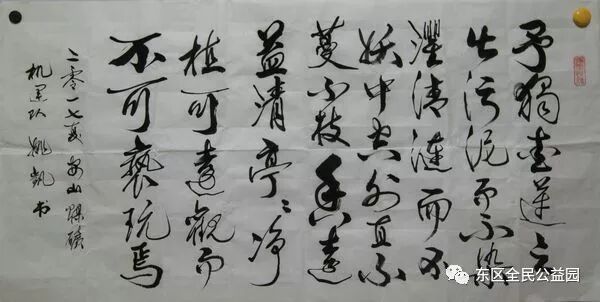 予獨愛蓮之
出污泥而不染
濯清漣而不
妖中空外直不
蔓不枝香遠
益清亭亭净
植可遠觀而
不可褻玩焉
二零一七夏安山煤礦
机運队 姚凯书
东区全民公益园